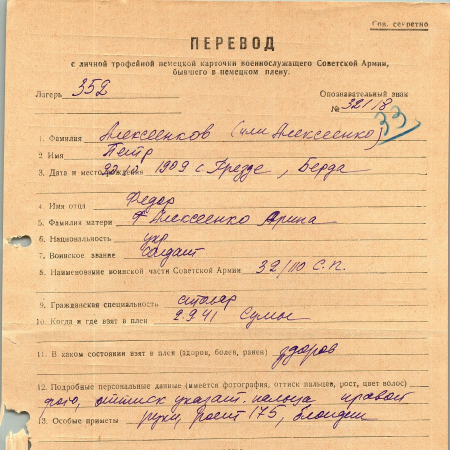 Сов. секретно
ПЕРЕВОД
с личной трофейной немецкой карточки военнослужащего Советской Армии,
бывшего в немецком плену.
Лагерь 352 Опознавательный знак
№ 32118 33
1. Фамилия Алексеенков (или Алексеенко)
2 Имя Петр
3. Дата и место рождения 1909 с Брездe, Берда
4. Имя отца Федор
5. Фамилия матери Алексеенко Арина
6. Национальность укр
7. Воинское звание солдат
8. Наименование воинской части Советской Армии 32/110 с.п.
9. Гражданская специальность столяр
10. Когда и где взят в плен 2.9.41 Сумы
11. В каком состоянии взят в плен (здоров, болен, ранен) здоров
12. Подробные персональные данные (имеется фотография, оттиск пальцев, рост, цвет волос)
фото, оттиск указат. пальца правой
13. Особые приметы руки, рост 175, блондин